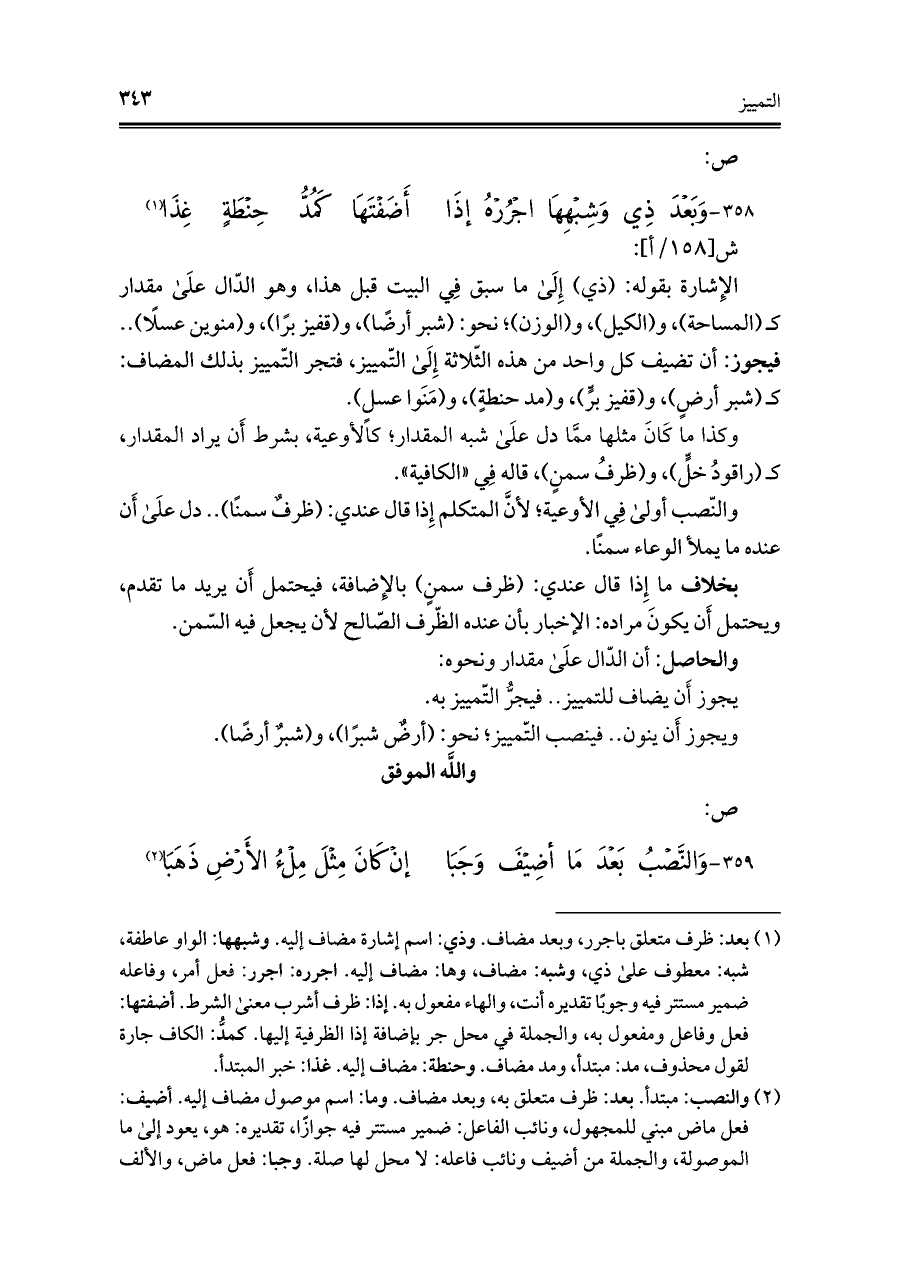 التمييز ٣٤٣
ص:
٣٥٨-وَبَعْدَ ذِي وَشِبْهِهَا اجْرُرْهُ إِذَا أَضَفْتَهَا كَمُدُّ حِنْطَةٍ غِذَا(١)
ش[١٥٨/ أ]:
الإِشارة بقوله: (ذي) إِلَىٰ ما سبق فِي البيت قبل هذا، وهو الدّال علَىٰ مقدار
كـ(المساحة)، و(الكيل)، و(الوزن)؛ نحو: (شبر أرضًا)، و(قفيز برًا)، و(منوين عسلًا)..
فيجوز: أن تضيف كل واحد من هذه الثّلاثة إِلَىٰ التّمييز، فتجر التّمييز بذلك المضاف:
كـ(شبر أرضٍ)، و(قفيز برٍّ)، و(مد حنطةٍ)، و(مَنَوا عسلٍ).
وكذا ما كَانَ مثلها ممَّا دل علَىٰ شبه المقدار؛ كالأوعية، بشرط أَن يراد المقدار،
كـ(راقودُ خلٍّ)، و(ظرفُ سمنٍ)، قاله فِي «الكافية».
والنّصب أولىٰ فِي الأوعية؛ لأنَّ المتكلم إِذا قال عندي: (ظرفٌ سمنًا).. دل علَىٰ أَن
عنده ما يملأ الوعاء سمنًا.
بخلاف ما إِذا قال عندي: (ظرف سمنٍ) بالإِضافة، فيحتمل أَن يريد ما تقدم،
ويحتمل أَن يكونَ مراده: الإخبار بأن عنده الظّرف الصّالح لأن يجعل فيه السّمن.
والحاصل: أن الدّال علَىٰ مقدار ونحوه:
يجوز أَن يضاف للتمييز.. فيجرُّ التّمييز به.
ويجوز أَن ينون.. فينصب التّمييز؛ نحو: (أرضٌ شبرًا)، و(شبرٌ أرضًا).
واللَّه الموفق
ص:
٣٥٩-وَالنَّصْبُ بَعْدَ مَا أُضِيْفَ وَجَبَا إِنْ كَانَ مِثْلَ مِلْءُ الأَرْضِ ذَهَبَا(٢)
(١) بعد: ظرف متعلق باجرر، وبعد مضاف. وذي: اسم إشارة مضاف إليه. وشبهها: الواو عاطفة،
شبه: معطوف علىٰ ذي، وشبه: مضاف، وها: مضاف إليه. اجرره: اجرر: فعل أمر، وفاعله
ضمير مستتر فيه وجوبًا تقديره أنت، والهاء مفعول به. إذا: ظرف أشرب معنىٰ الشرط. أضفتها:
فعل وفاعل ومفعول به، والجملة في محل جر بإضافة إذا الظرفية إليها. كمدُّ: الكاف جارة
لقول محذوف، مد: مبتدأ، ومد مضاف. وحنطة: مضاف إليه. غذا: خبر المبتدأ.
(٢) والنصب: مبتدأ. بعد: ظرف متعلق به، وبعد مضاف. وما: اسم موصول مضاف إليه. أضيف:
فعل ماض مبني للمجهول، ونائب الفاعل: ضمير مستتر فيه جوازًا، تقديره: هو، يعود إلىٰ ما
الموصولة، والجملة من أضيف ونائب فاعله: لا محل لها صلة. وجبا: فعل ماض، والألف